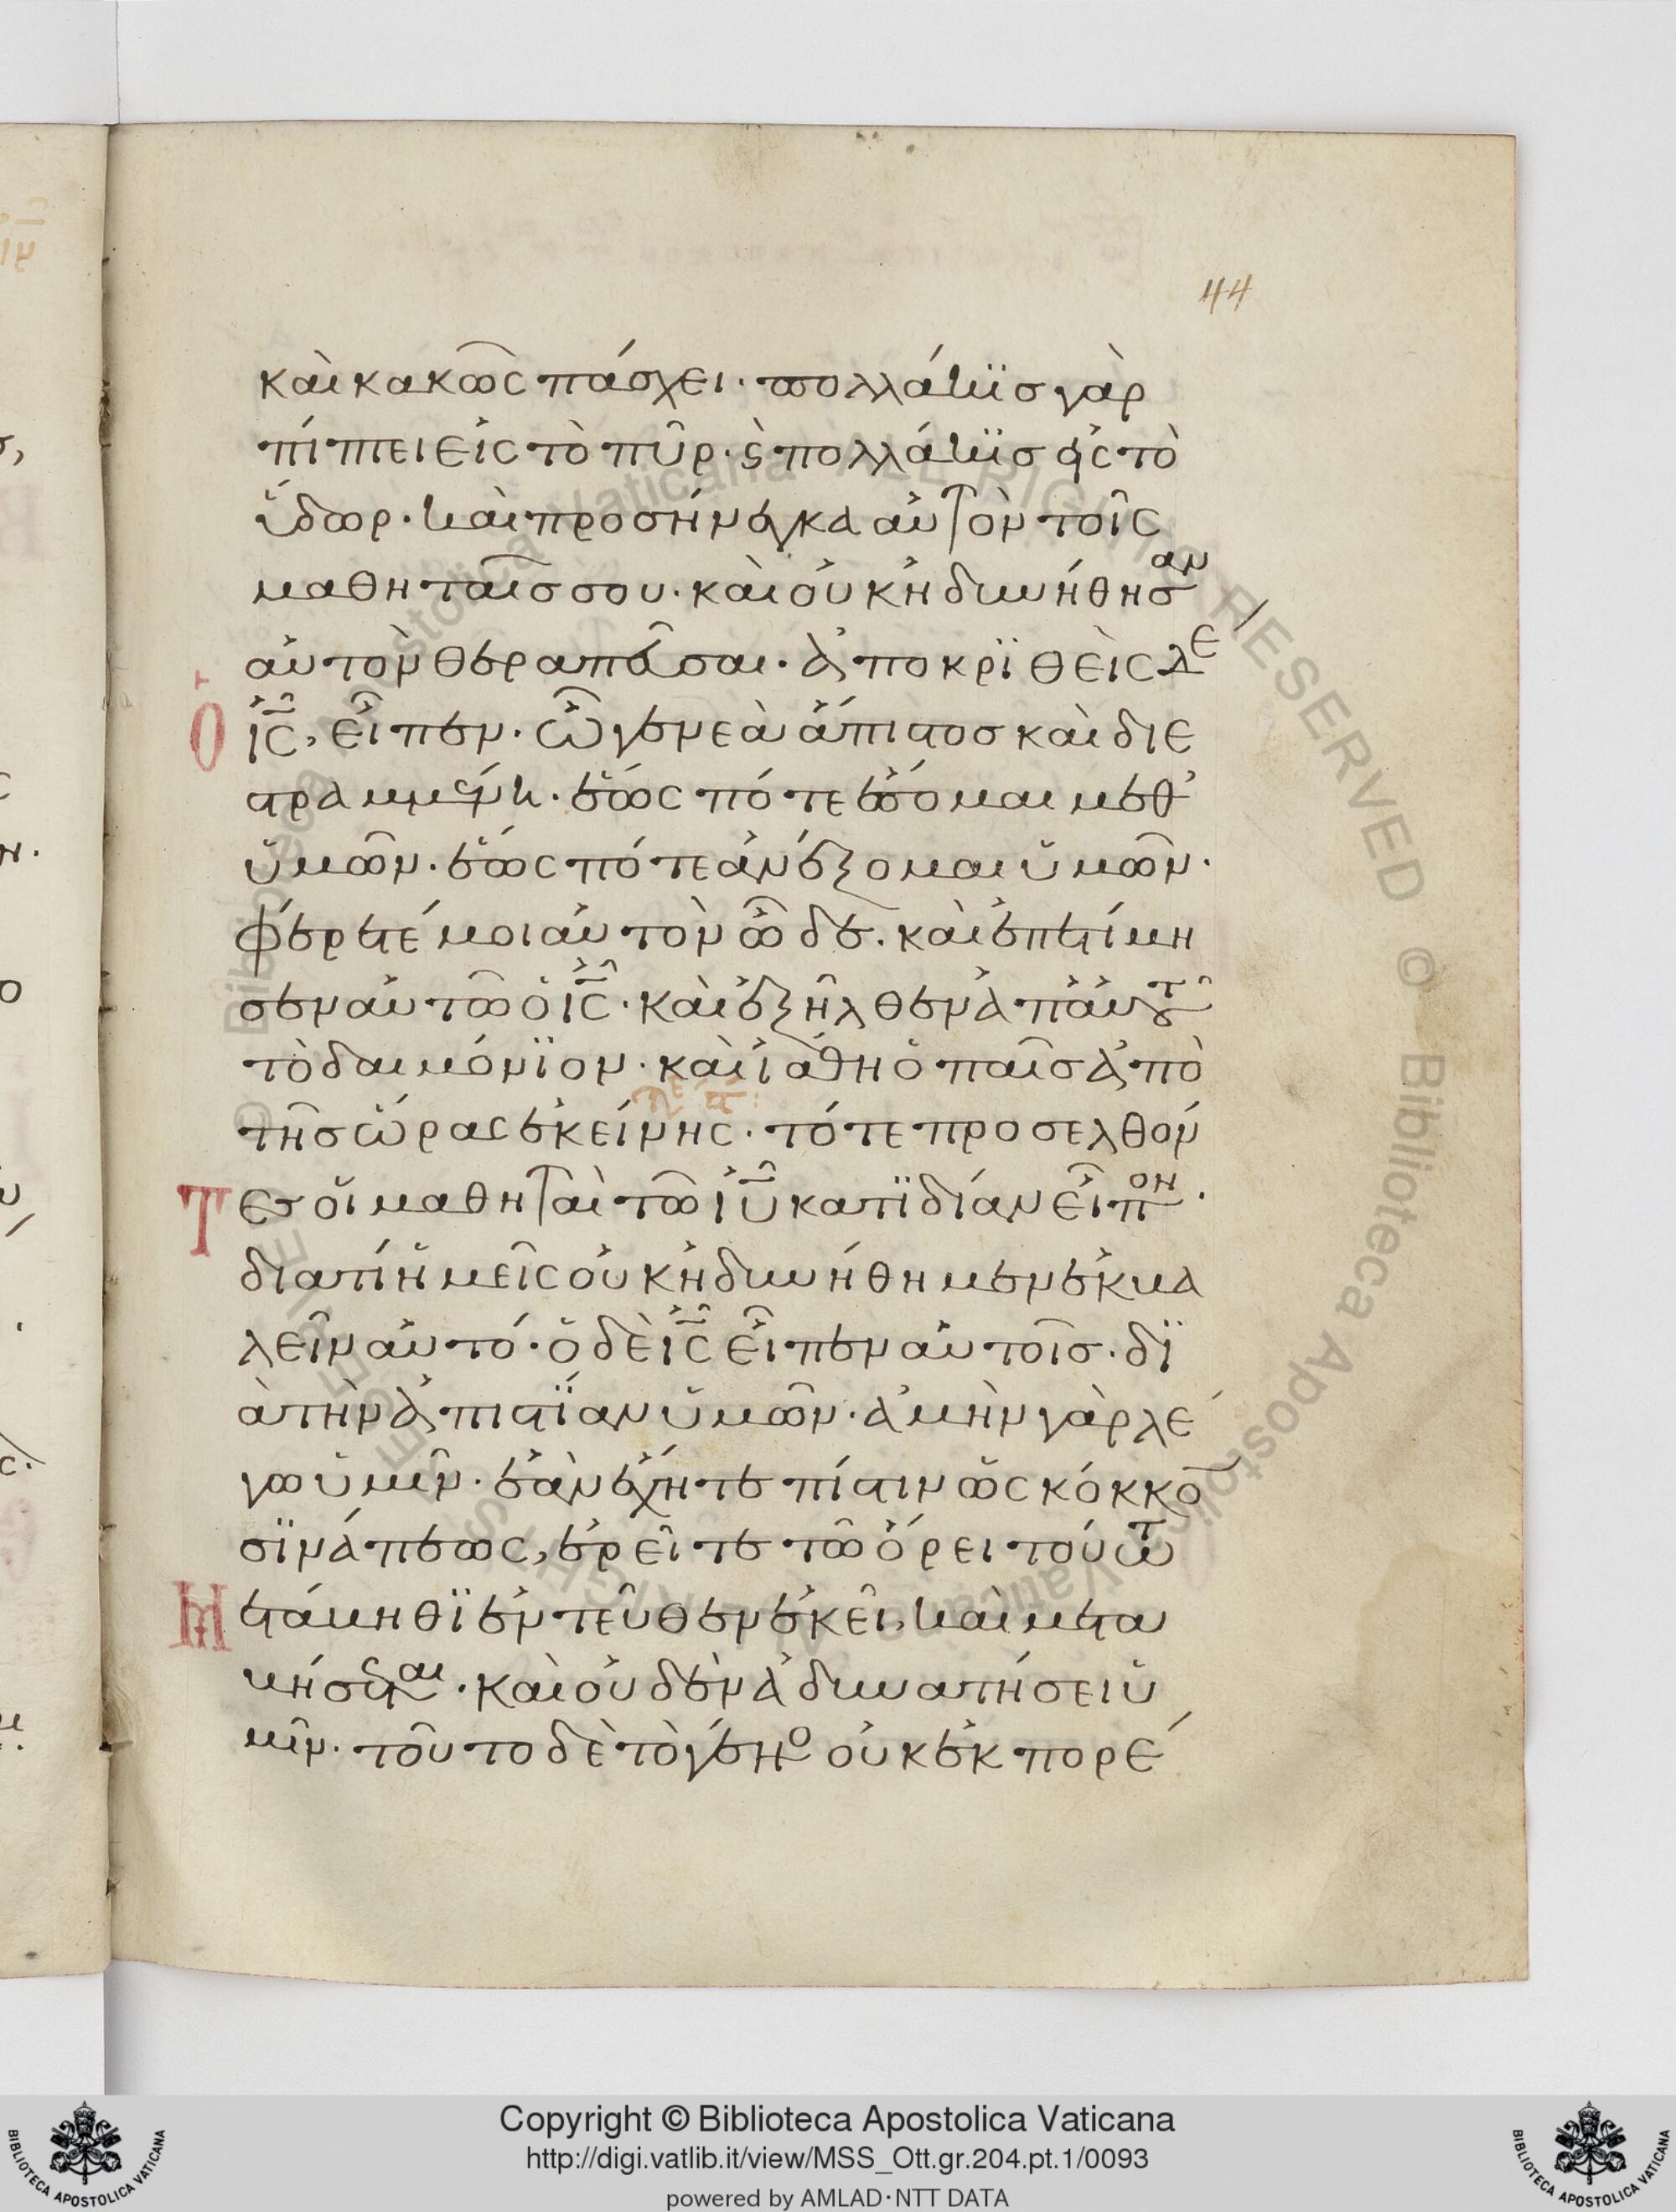 44
καὶ κακῶς πάσχει· πολλάκϊς γὰρ
πίπτει εἰς τὸ πῦρ· ϛ πολλάκϊς εἰς τὸ
ὕδωρ· καὶ προσήνεγκα αὐτὸν τοῖς
μαθηταῖς σου· καὶ οὐκ ἠδυνήθησαν
αὐτὸν θεραπεῦσαι· ἀποκρϊθεὶς δὲ
Ὁ ις, εἶπεν· ὦ γενεὰ ἄπιστος καὶ διε
στραμμένη· ἕως πότε ἔσομαι μεθ'
ὑμῶν· ἕως πότε ἀνέξομαι ὑμῶν·
φέρετέ μοι αὐτὸν ὧδε· καὶ ἐπετίμη
σεν αὐτῶ ὁ ις· καὶ ἐξῆλθεν ἀπ' αὐτοῦ
τὸ δαιμόνϊον· καὶ ἰάθη ὁ παῖς ἀπὸ
τῆς ὥρας ἐκείνης· τότε προσελθόν
Τ ες οἱ μαθηταὶ τῶ ιυ κατϊδίαν εἶπον·
διατί ἡμεῖς οὐκ ἠδυνήθημεν ἐκβα
λεῖν αὐτό· ὁ δὲ ις εἶπεν αὐτοῖς· δϊ
ὰ τὴν ἀπιστΐαν ὑμῶν· ἀμὴν γὰρ λέ
γω ὑμῖν· ἐὰν ἔχητε πίστιν ὡς κόκκον
σϊνάπεως, ἐρεῖτε τῶ ὄρει τούτω
Μ ετάβηθϊ ἐντεῦθεν ἐκεῖ, καὶ μετα
βήσεται· καὶ οὐδὲν ἀδυνατήσει ὑ
μῖν· τοῦτο δὲ τὸ γένος οὐκ ἐκπορεύ
Copyright © Biblioteca Apostolica Vaticana
http://digi.vatlib.it/view/MSS_Ott.gr.204.pt.1/0093
powered by AMLAD·NTT DATA